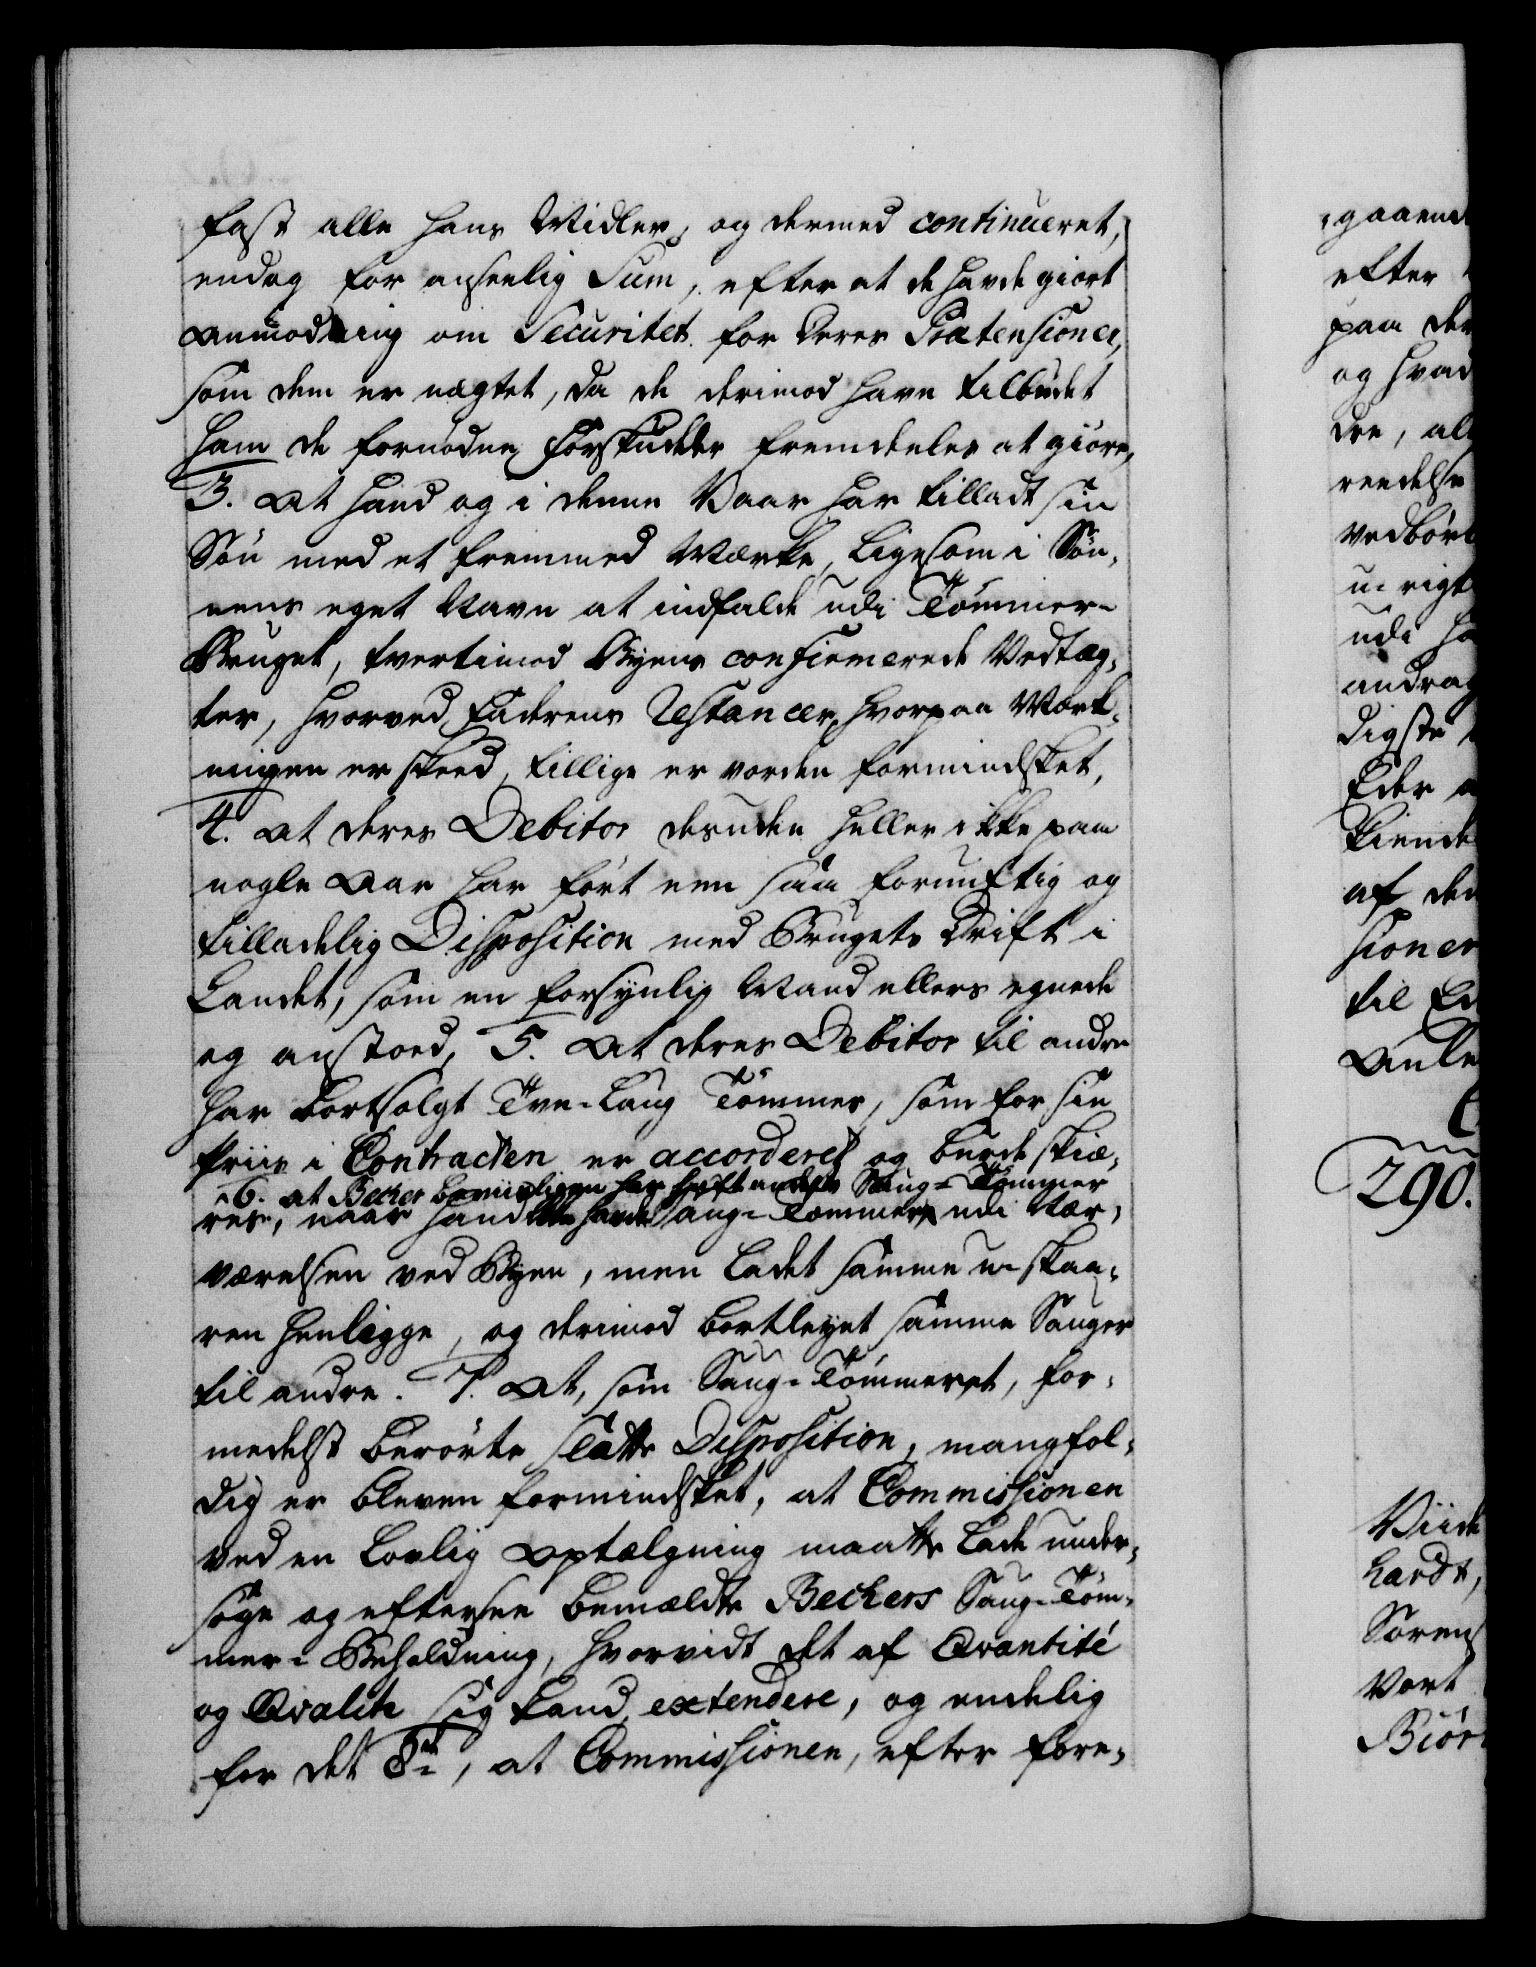 fast alle hans Midler, og dermed continueret,
endog for anseelig Sum, efter at de havde giort
Anmodning om Securitet for deres Prætensioner,
som dem er nægtet, da de derimod have tilbudet
ham de fornødne Forskudder fremdeeles at giöre,
3. At hand og i denne Vaar har tilladt sin
Søn med et fremmed Mærke, ligesom i Søn¬
nens eget Navn at indfalde udi Tømmer-
Bruget, tvertimod Byens confirmerede Vedtæg¬
ter, hvorved Faderens Restancer, hvorpaa Mærk¬
ningen er skeed, tillige er vorden formindsket,
4. at deres Debitor desuden heller ikke paa
nogle Aar har fört een saa fornuftig og
tilladelig Disposition med Brugets Drift i
Landet, som en forsynlig Mand ellers egnede
og anstoed, 5. At deres Debitor til andre
har bortsolgt Tve-Laug Tømmer, som for sin
Priis i Contracten er accorderet og burde skiæ¬
6. at Becker har haft Saug-Tømmer
res, naar hand havde Saug-Tømmer udi Nær¬
værelsen ved Byen, men ladet samme u-skaa¬
ren henligge, og derimod bortleyet samme Sauger
til andre. 7. At, som Saug-Tømmeret, for¬
medelst berørte slætte Disposition, mangfol¬
dig er bleven formindsket, at Commissionen
ved en lovlig Optælgning maatte lade under¬
søge og eftersee bemældte Beckers Saug-Tøm¬
mer-Beholdning, hvorvidt det af Qvantité
og Qvalite sig kand extendere, og endelig
for det 8de, at Commissionen, efter fore¬
gaaend
efter
paa de
og hvad
dre, al
reedelse
vedbör
u-rigt
udi ha
andrag
digste
Eder
kiende
af den
sioner
til Ed
Anle
290.
Viide
hardt,
Sörens
Vort
Biör